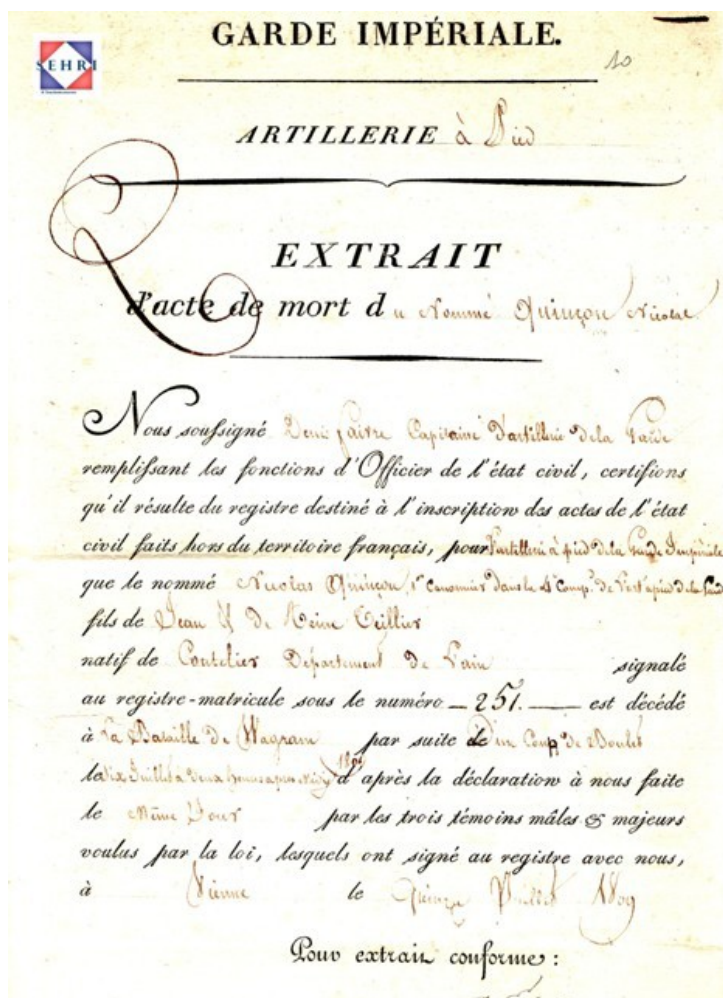 GARDE IMPÉRIALE.
SEHRI
10
ARTILLERIE à Pied
EXTRAIT
d'acte de mort du Nommé Quinçon Nicolas
Nous soussigné Denis Faivre Capitaine d'artillerie de la Garde
remplissant les fonctions d'Officier de l'état civil, certifions
qu'il résulte du registre destiné à l'inscription des actes de l'état
civil faits hors du territoire français, pour l'artillerie à pied de la Garde Impériale
que le nommé Nicolas Quinçon, 1er Canonnier dans la 4e Comp.e de l'art à pied de la Garde
fils de Jean & de Reine Teillier
natif de Coutelier Département de Lain signalé
au registre-matricule sous le numéro 251. est décédé
à La Bataille de Wagram par suite de d'un Coup de Boulet
le six Juillet à deux heures après Midy 1809 d'après la déclaration à nous faite
le Même Jour par les trois témoins mâles & majeurs
voulus par la loi, lesquels ont signé au registre avec nous,
à Vienne le Quinze Juillet 1809
Pour extrait conforme :